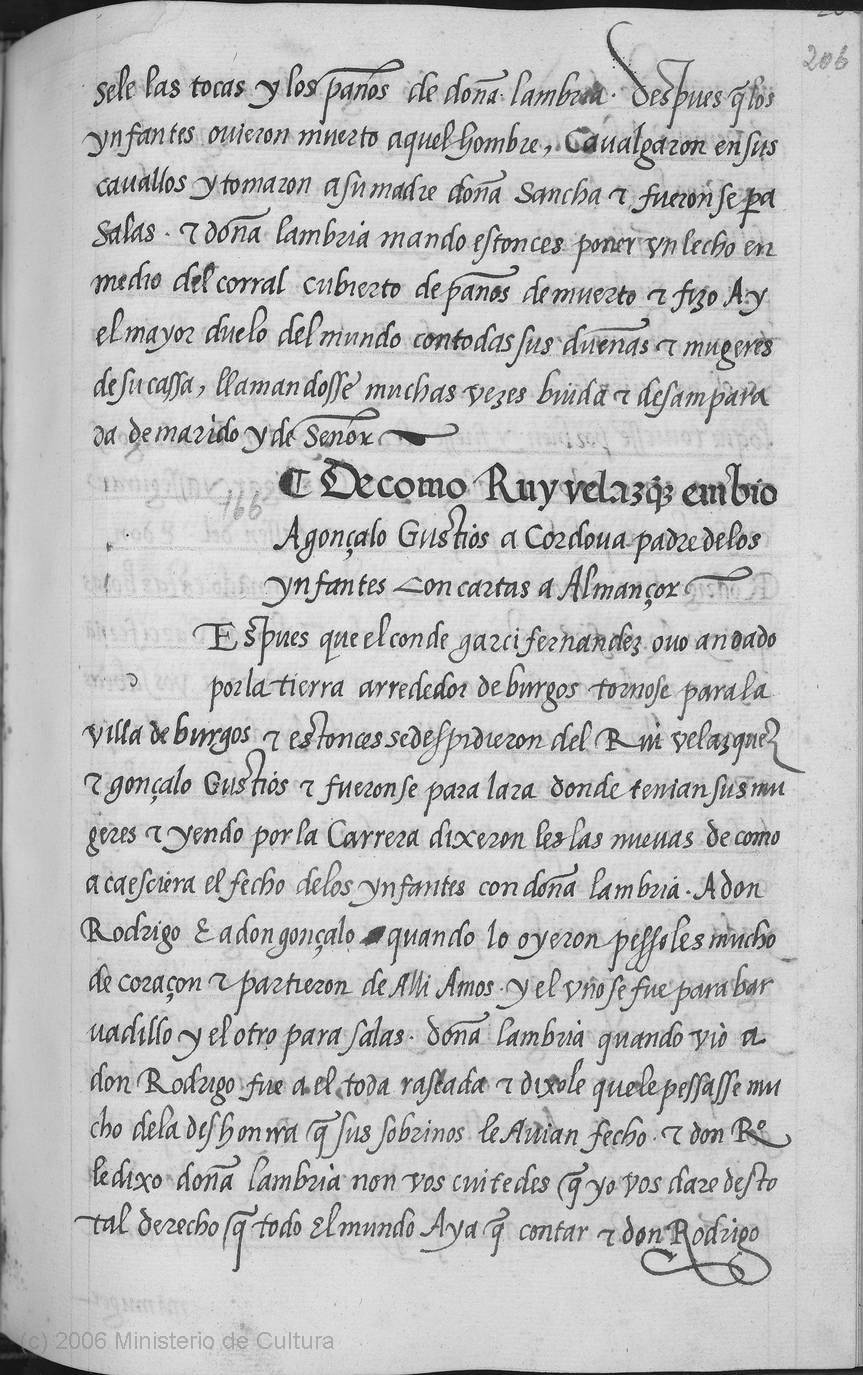 206
sele las tocas y los paños de doña lambria. Despues q̃ los
ynfantes ouieron muerto aquel hombre, Caualgaron en sus
cauallos y tomaron a su madre doña Sancha ⁊ fueronse pa
Salas. ⁊ doña lambria mando estonces poner vn lecho en
medio del corral cubierto de paños de muerto ⁊ fizo Ay
el mayor duelo del mundo con todas sus dueñas ⁊ mugeres
de su cassa, llamandosse muchas vezes biuda ⁊ desampara
da de marido y de Señor
166
¶ De como Ruy velazq̃z embio
A gonçalo Gustios a Cordoua padre de los
ynfantes con cartas a Almançor
Espues que el conde garci fernandez ouo andado
por la tierra arrededor de burgos tornose para la
villa de burgos ⁊ estonces se despidieron del Rui velazquez
⁊ gonçalo Gustios ⁊ fueronse para lara donde tenian sus mu
geres ⁊ yendo por la Carrera dixeron les las nueuas de como
acaesciera el fecho de los ynfantes con doña lambria. A don
Rodrigo & a don gonçalo quando lo oyeron pessoles mucho
de coraçon ⁊ partieron de Alli Amos. y el vno se fue para bar
uadillo y el otro para salas. doña lambria quando vio a
don Rodrigo fue a el toda rascada ⁊ dixole que le pessasse mu
cho de la deshonrra q̃ sus sobrinos le Auian fecho. ⁊ don Rº
le dixo doña lambria non vos cuitedes q̃ yo vos dare desto
tal derecho q̃ todo El mundo Aya q̃ contar ⁊ don Rodrigo
(c) 2006 Ministerio de Cultura